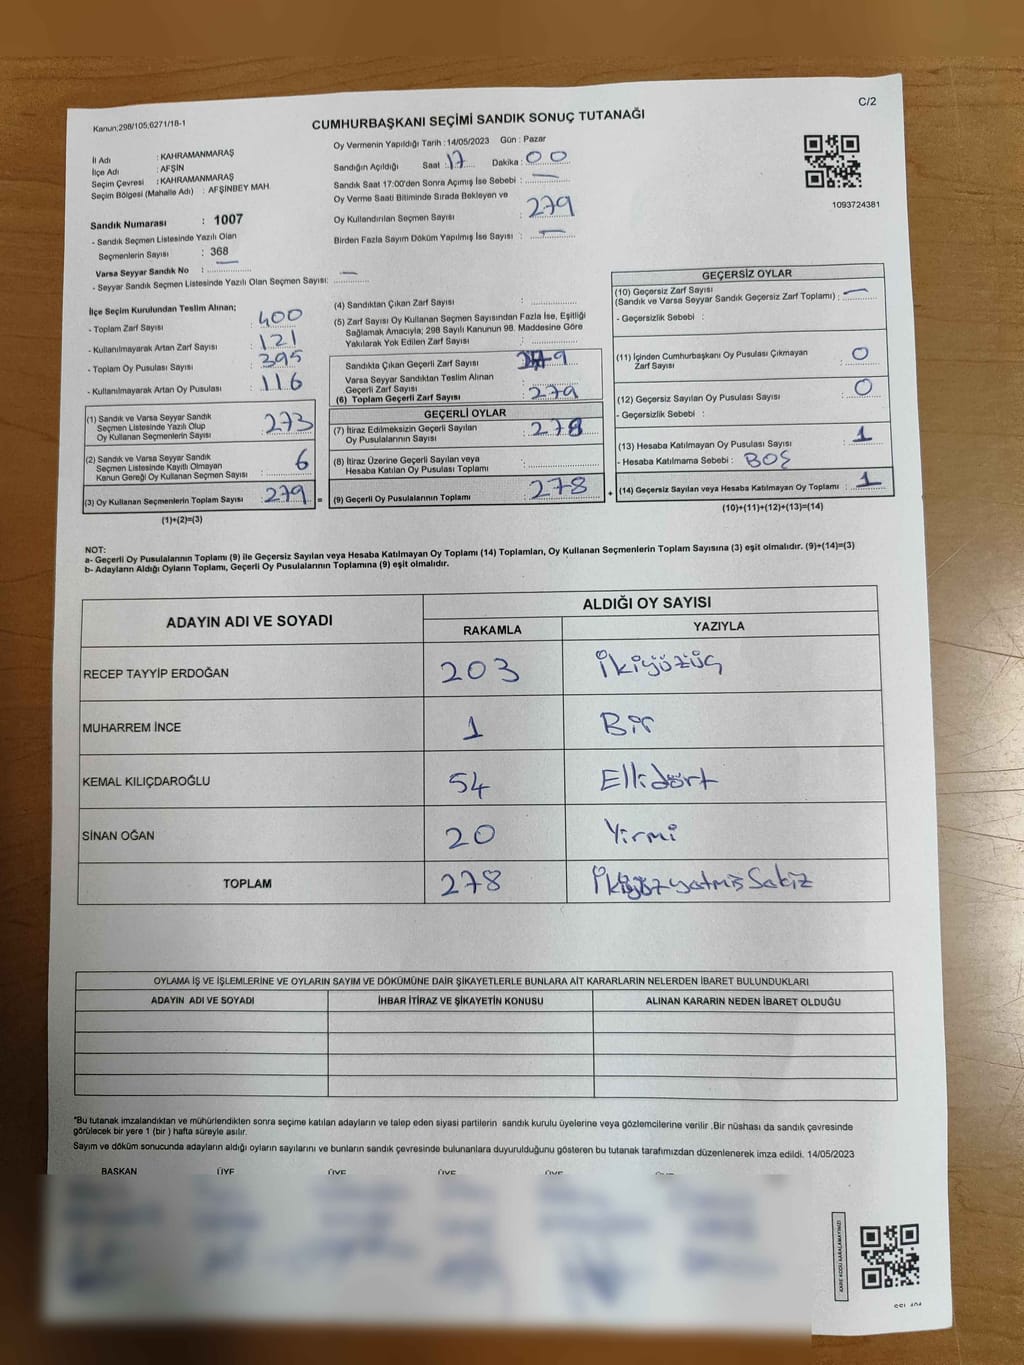 C/2
Kanun;298/105,6271/18-1
CUMHURBAŞKANI SEÇİMİ SANDIK SONUÇ TUTANAĞI
Oy Vermenin Yapıldığı Tarih :14/05/2023 Gün : Pazar
İl Adı : KAHRAMANMARAŞ
İlçe Adı : AFŞİN
Seçim Çevresi : KAHRAMANMARAŞ
Seçim Bölgesi (Mahalle Adı) : AFŞİNBEY MAH.
Sandığın Açıldığı Saat : 17 Dakika : 00
Sandık Saat 17:00'den Sonra Açımış İse Sebebi : —
Oy Verme Saati Bitiminde Sırada Bekleyen ve
Oy Kullandırılan Seçmen Sayısı : 279
Birden Fazla Sayım Döküm Yapılmış İse Sayısı : —
1093724381
Sandık Numarası : 1007
- Sandık Seçmen Listesinde Yazılı Olan
Seçmenlerin Sayısı : 368
Varsa Seyyar Sandık No : —
- Seyyar Sandık Seçmen Listesinde Yazılı Olan Seçmen Sayısı: —
İlçe Seçim Kurulundan Teslim Alınan;
- Toplam Zarf Sayısı : 400
- Kullanılmayarak Artan Zarf Sayısı : 121
- Toplam Oy Pusulası Sayısı : 395
- Kullanılmayarak Artan Oy Pusulası : 116
(1) Sandık ve Varsa Seyyar Sandık
Seçmen Listesinde Yazılı Olup
Oy Kullanan Seçmenlerin Sayısı : 273
(2) Sandık ve Varsa Seyyar Sandık
Seçmen Listesinde Kayıtlı Olmayan
Kanun Gereği Oy Kullanan Seçmen Sayısı : 6
(3) Oy Kullanan Seçmenlerin Toplam Sayısı : 279 =
(1)+(2)=(3)
(4) Sandıktan Çıkan Zarf Sayısı :
(5) Zarf Sayısı Oy Kullanan Seçmen Sayısından Fazla İse, Eşitliği
Sağlamak Amacıyla; 298 Sayılı Kanunun 98. Maddesine Göre
Yakılarak Yok Edilen Zarf Sayısı :
Sandıkta Çıkan Geçerli Zarf Sayısı : 9
Varsa Seyyar Sandıktan Teslim Alınan
Geçerli Zarf Sayısı :
(6) Toplam Geçerli Zarf Sayısı : 279
GEÇERLİ OYLAR
(7) İtiraz Edilmeksizin Geçerli Sayılan
Oy Pusulalarının Sayısı : 278
(8) İtiraz Üzerine Geçerli Sayılan veya
Hesaba Katılan Oy Pusulası Toplamı :
(9) Geçerli Oy Pusulalarının Toplamı : 278 +
GEÇERSİZ OYLAR
(10) Geçersiz Zarf Sayısı
(Sandık ve Varsa Seyyar Sandık Geçersiz Zarf Toplamı) : —
- Geçersizlik Sebebi :
(11) İçinden Cumhurbaşkanı Oy Pusulası Çıkmayan
Zarf Sayısı : 0
(12) Geçersiz Sayılan Oy Pusulası Sayısı : 0
- Geçersizlik Sebebi :
(13) Hesaba Katılmayan Oy Pusulası Sayısı : 1
- Hesaba Katılmama Sebebi : BOŞ
(14) Geçersiz Sayılan veya Hesaba Katılmayan Oy Toplamı : 1
(10)+(11)+(12)+(13)=(14)
NOT:
a- Geçerli Oy Pusulalarının Toplamı (9) ile Geçersiz Sayılan veya Hesaba Katılmayan Oy Toplamı (14) Toplamları, Oy Kullanan Seçmenlerin Toplam Sayısına (3) eşit olmalıdır. (9)+(14)=(3)
b- Adayların Aldığı Oyların Toplamı, Geçerli Oy Pusulalarının Toplamına (9) eşit olmalıdır.
ADAYIN ADI VE SOYADI
ALDIĞI OY SAYISI
RAKAMLA YAZIYLA
RECEP TAYYİP ERDOĞAN 203 İkiyüzüç
MUHARREM İNCE 1 Bir
KEMAL KILIÇDAROĞLU 54 Ellidört
SİNAN OĞAN 20 Yirmi
TOPLAM 278 İkiyüzyatmişSakiz
OYLAMA İŞ VE İŞLEMLERİNE VE OYLARIN SAYIM VE DÖKÜMÜNE DAİR ŞİKAYETLERLE BUNLARA AİT KARARLARIN NELERDEN İBARET BULUNDUKLARI
ADAYIN ADI VE SOYADI İHBAR İTİRAZ VE ŞİKAYETİN KONUSU ALINAN KARARIN NEDEN İBARET OLDUĞU
*Bu tutanak imzalandıktan ve mühürlendikten sonra seçime katılan adayların ve talep eden siyasi partilerin sandık kurulu üyelerine veya gözlemcilerine verilir .Bir nüshası da sandık çevresinde
görülecek bir yere 1 (bir ) hafta süreyle asılır.
Sayım ve döküm sonucunda adayların aldığı oyların sayılarını ve bunların sandık çevresinde bulunanlara duyurulduğunu gösteren bu tutanak tarafımızdan düzenlenerek imza edildi. 14/05/2023
BAŞKAN ÜYE ÜYE ÜYE ÜYE
KARE KODU KARALAMAYINIZ!